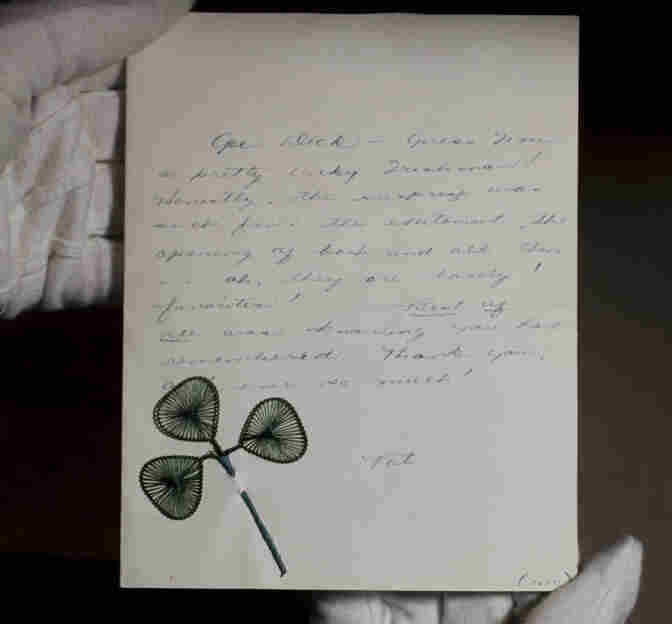 Gee Dick – Guess I'm
a pretty lucky Irishman!
Honestly, the surprise was
such fun. The excitement, the
opening of box and all then
-- oh, they are lovely!
favorites! Best of
all was knowing you had
remembered. Thank you,
ever so much!
Pat